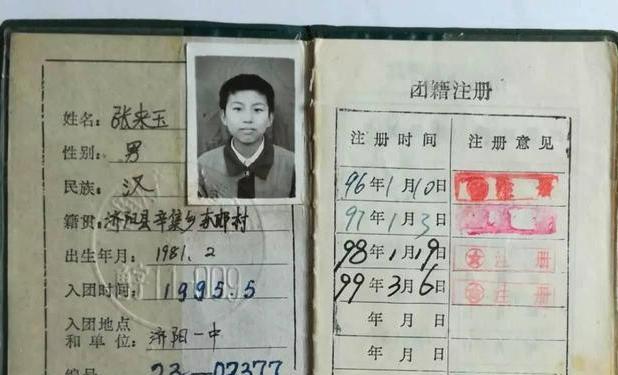 姓名：张来玉
性别：男
民族：汉
籍贯：济阳县辛集乡
出生年月：1981.2
入团时间：1995.5
入团地点
和单位：济阳一中
编号 23—02377
团籍注册
注册时间 注册意见
96年1月10日
97年1月3日
98年1月19日 注册
99年3月6日 注册
年月日
年月日